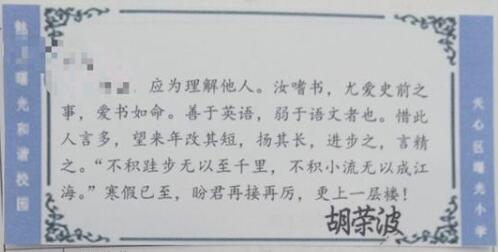 魅
曙光和谐校园
应为理解他人。汝嗜书，尤爱史前之
事，爱书如命。善于英语，弱于语文者也。惜此
人言多，望来年改其短，扬其长，进步之，言精
之。“不积跬步无以至千里，不积小流无以成江
海。”寒假已至，盼君再接再厉，更上一层楼！
胡荣波
天心区曙光小学